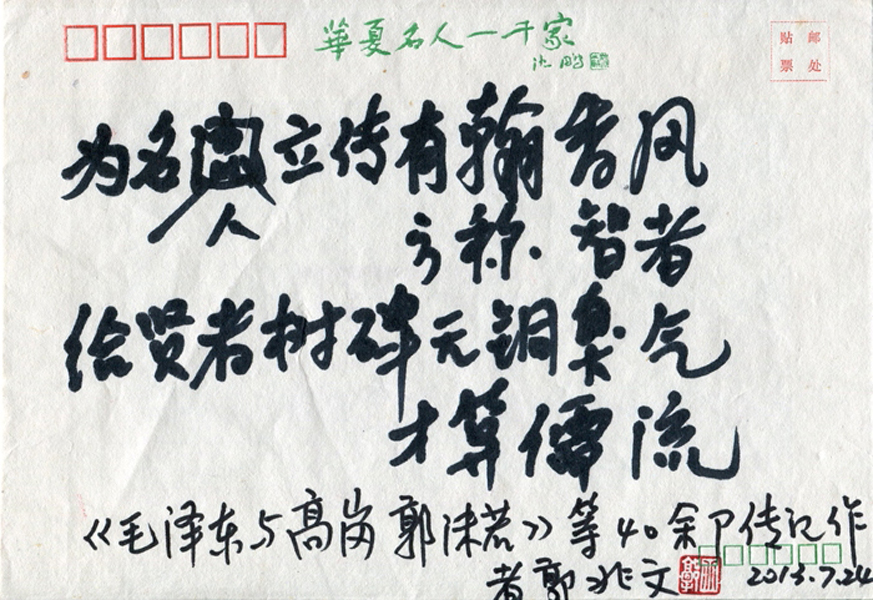 華夏名人一千家
沈鹏
贴 邮
票 处
为名立传有翰香风
人
方称智者
给贤者树碑无铜臭气
才算儒流
《毛泽东与高岗郭沫若》等40余部传记作
者郭兆文
2013.7.24